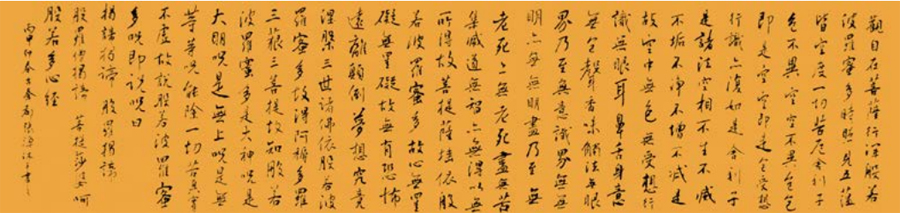 觀自在菩薩行深般若
波羅蜜多時照見五蘊
皆空度一切苦厄舍利子
色不異空空不異色色
即是空空即是色受想
行識亦復如是舍利子
是諸法空相不生不滅
不垢不淨不增不減是
故空中無色無受想行
識無眼耳鼻舌身意
無色聲香味觸法無眼
界乃至無意識界無無
明亦無無明盡乃至無
老死亦無老死盡無苦
集滅道無智亦無得以無
所得故菩提薩埵依般
若波羅蜜多故心無罣
礙無罣礙故無有恐怖
遠離顛倒夢想究竟
涅槃三世諸佛依般若波
羅蜜多故得阿耨多羅
三藐三菩提故知般若
波羅蜜多是大神咒是
大明咒是無上咒是無
等等咒能除一切苦真實
不虛故說般若波羅蜜
多咒即說咒曰
揭諦揭諦 般羅揭諦
般羅僧揭諦 菩提莎婆呵
般若心經